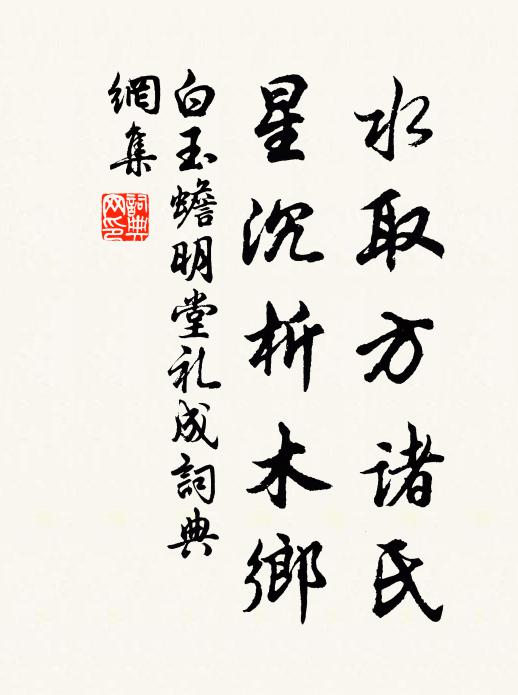 水取方诸氏
星沉析木鄉
白玉蟾明堂礼成詞典
網集
詞典
网印